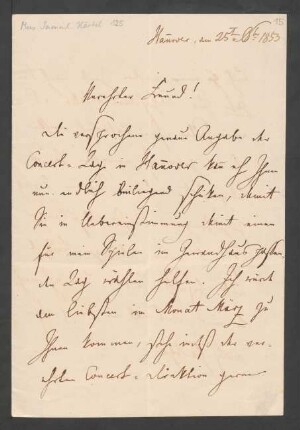 Mus. Samml. Härtel 125
15
Hannover, am 25ten 1853
Verehrter Freund!
Die versprochene genaue Angabe der
Concert-Tage in Hannover kan ich Ihnen
nun endlich beiliegend schicken, damit
Sie in Uebereinstimmung damit einen
für mein Spielen im Gewandhaus passen-
den Tag wählen helfen. Ich würde
am liebsten im Monat März zu
Ihnen kommen, der ver-
ehrten Concert-Direktion gerne